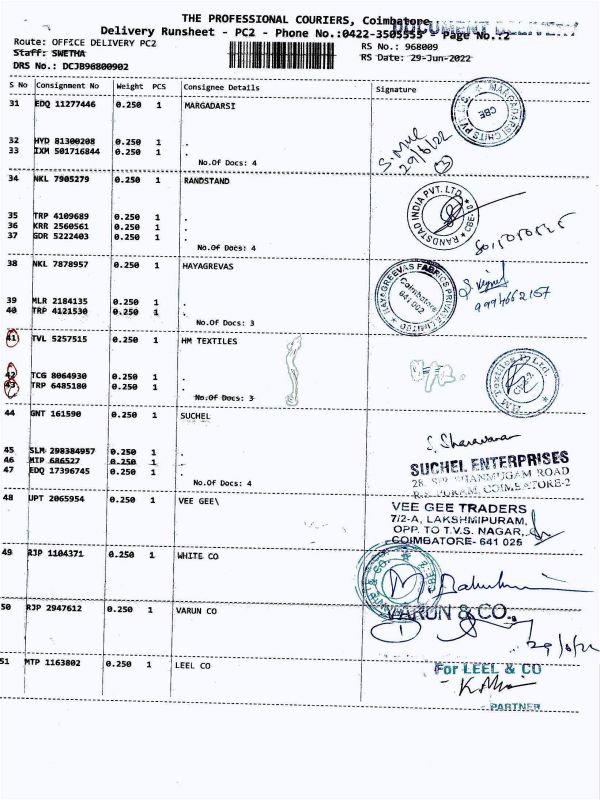 THE PROFESSIONAL COURIERS, Coimbatore
Delivery Runsheet - PC2 - Phone No.:0422-3505555 Page No.:2
Route: OFFICE DELIVERY PC2
RS No.: 968009
Staff: SWETHA
RS Date: 29-Jun-2022
DRS No.: DCJB96800902
S No Consignment No Weight PCS Consignee Details Signature
31 EDQ 11277446 0.250 1 MARGADARSI
MARGADARSI CHITS PVT. LTD.
CBE
32 HYD 81300208 0.250 1 .
33 IXM 501716844 0.250 1 .
No.Of Docs: 4
29/6/22
3
34 NKL 7905279 0.250 1 RANDSTAND
RANDSTAD INDIA PVT. LTD.
35 TRP 4109689 0.250 1 .
36 KRR 2560561 0.250 1 .
37 GDR 5222403 0.250 1 .
No.Of Docs: 4
38 NKL 7878957 0.250 1 HAYAGREVAS
HAYAGREEVAS FABRICS PRIVATE LIMITED
Coimbatore
641 002
39 MLR 2184135 0.250 1 .
40 TRP 4121530 0.250 1 .
No.Of Docs: 3
41 TVL 5257515 0.250 1 HM TEXTILES
42 TCG 8064930 0.250 1 .
43 TRP 6485180 0.250 1 .
No.Of Docs: 3
44 GNT 161590 0.250 1 SUCHEL
S. Sharavanan
45 SLM 298384957 0.250 1 .
46 MTP 686527 0.250 1 .
47 EDQ 17396745 0.250 1 .
No.Of Docs: 4
SUCHEL ENTERPRISES
28, SIR SHANMUGAM ROAD
R.S. PURAM, COIMBATORE-2
48 UPT 2065954 0.250 1 VEE GEE\
VEE GEE TRADERS
7/2-A, LAKSHMIPURAM,
OPP. TO T.V.S. NAGAR,
COIMBATORE- 641 025
49 RJP 1104371 0.250 1 WHITE CO
50 RJP 2947612 0.250 1 VARUN CO
VARUN & CO.,
1
29/6/22
51 MTP 1163802 0.250 1 LEEL CO
For LEEL & CO
PARTNER